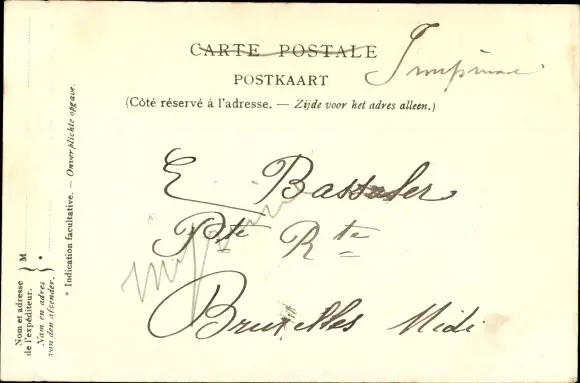 CARTE POSTALE
Imprimé
POSTKAART
(Côté réservé à l'adresse. — Zijde voor het adres alleen.)
E Bassaler
Pte Rte
Bruxelles Midi
Nom et adresse de l'expéditeur. } M
Naam en adres van den afzender. } *
* Indication facultative. — Onverplichte opgave.